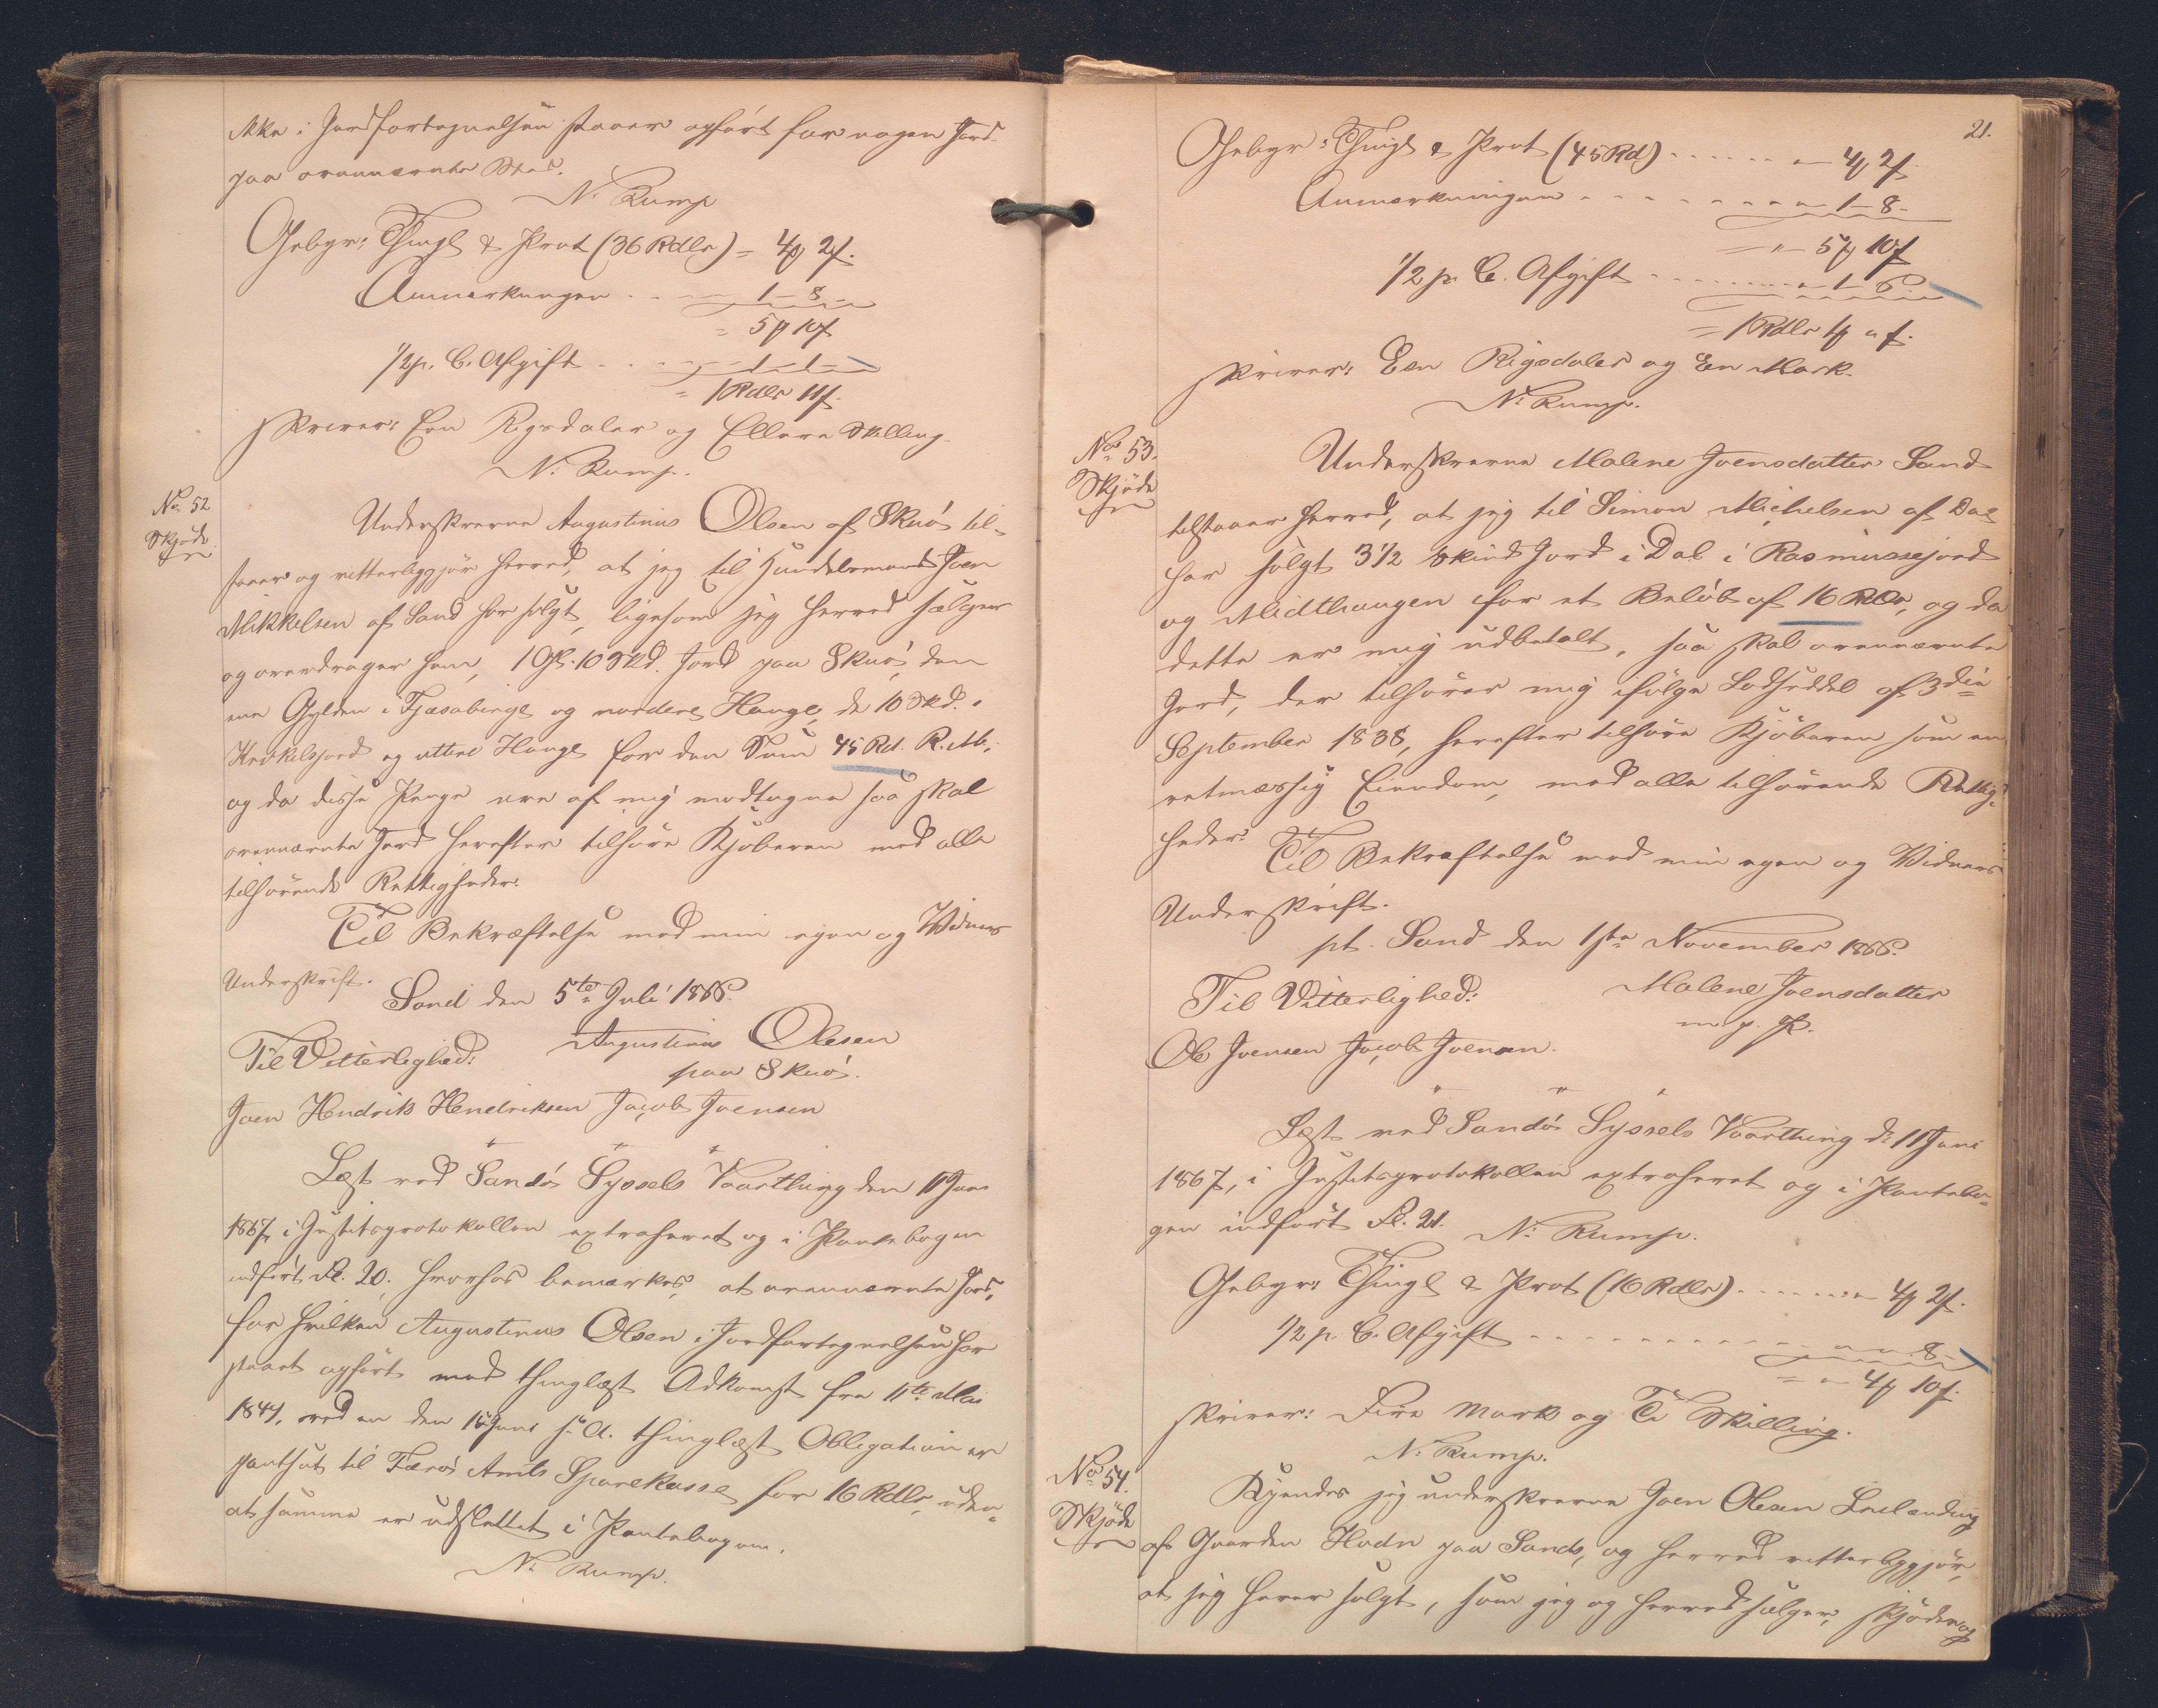 ikke i Jordfortegnelsen staaer opført for nogen Jord
paa ovennævnte Sted.
N. Rump
Gebyr: Thingl & Prot (36 Rdlr) = 4 ꝑ 2 ſ.
Anmærkningen . . . 1 - 8 -
= 5 ꝑ 10 ſ
1/2 p. C. Afgift . . . 1 - 1 -
= 1 Rdlr 11 ſ.
skriver: Een Rigsdaler og Elleve Skilling.
N. Rump.
No. 52
Skjøde.
Underskrevne Augustinus Olsen af Skuø til-
staaer og vitterliggjør herved, at jeg til Handelsmand Joen
Mikkelsen af Sand har solgt, ligesom jeg herved sælger
og overdrager ham, 1 Gl. 10 Skd. Jord paa Skuø, den
ene Gylden i Tjæsabinge og nordere Hauge, de 10 Skd. i
Heikilsjord og uttere Hauge for den Sum 45 Rd. R. M.,
og da disse Penge ere af mig modtagne saa skal
ovennævnte Jord herefter tilhøre Kjøberen med alle
tilhørende Rettigheder.
Til Bekræftelse med min egen og Vidners
Underskrift.
Sand den 5te Juli 1866.
Til Vitterlighed: Augustinus Olesen
paa Skuø.
Joen Hendrik Hendriksen Jacob Joensen
" " "
Læst ved Sandø Syssels Vaarthing den 11 Juni
1867, i Justitsprotokollen extraheret og i Pantebogen
indført Fl. 20. hvorhos bemærkes, at ovennævnte Jord,
for hvilken Augustinus Olsen i Jordfortegnelsen har
staaet opført med thinglæst Adkomst fra 11te Mai
1847, ved en den 15 Juni s. A. thinglæst Obligation er
pantsat til Færø Amts Sparekasse for 16 Rdlr, uden
at samme er udslettet i Pantebogen.
N. Rump.
21.
Gebyr: Thingl & Prot (45 Rd) . . . . . . " 4 ꝑ 2 ſ.
Anmærkningen . . . . . . . . " 1 - 8 -
= " - 5 ꝑ 10 ſ
1/2 p. C. Afgift . . . . . . . " 1 - 6 -
= 1 Rdlr 1 ꝑ " ſ.
skriver: Een Rigsdaler og Een Mark.
N. Rump.
No. 53.
Skjøde
Underskrevne Malene Joensdatter Sand
tilstaaer herved, at jeg til Simon Michelsen af Dal
har solgt 3 1/2 Skind Jord i Dal i Rasmussejord
og Midthaugen for et Beløb af 16 Rdlr, og da
dette er mig udbetalt, saa skal ovennævnte
Jord, der tilhører mig ifølge Lodseddel af 3die
September 1838, herefter tilhøre Kjøberen som en
retmæssig Eiendom, med alle tilhørende Rettig-
heder.
Til Bekræftelse med min egen og Vidners
Underskrift.
pt. Sand den 1ste November 1866.
Til Vitterlighed: Malene Joensdatter
m. p. P.
Ole Joensen Jacob Joensen.
" " "
Læst ved Sandø Syssels Vaarthing d. 11 Juni
1867, i Justitsprotokollen extraheret og i Pantebo-
gen indført Fl. 21. N. Rump.
Gebyr: Thingl & Prot (16 Rdlr) . . . . . . " 4 ꝑ 2 ſ.
1/2 p. C. Afgift . . . . . . . . . . " " 8 -
= " 4 ꝑ 10 ſ.
skriver: Fire Mark og Ti Skilling.
N. Rump.
No. 54.
Skjøde
Kjendes jeg underskrevne Joen Olesen Leelænding
af Gaarden Hodn paa Sand, og herved vitterliggjør,
at jeg haver solgt, som jeg og herved sælger, skjøder og